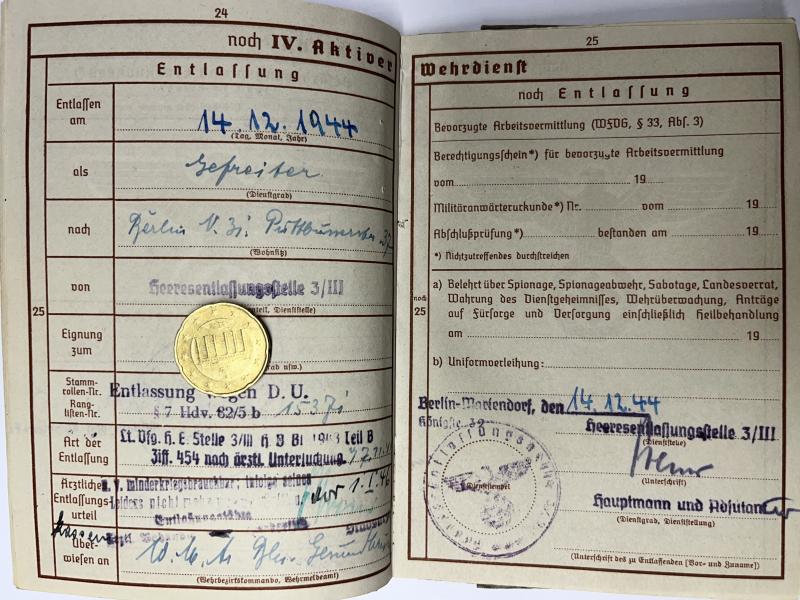 24
noch IV. Aktiver
Entlassung
Entlassen am
14.12.1944
(Tag, Monat, Jahr)
als
Gefreiter
(Dienstgrad)
nach
Berlin
(Wohnsitz)
von
Heeresentlassungsstelle 3/III
Dienststelle)
25
Eignung zum
usw.)
Stamm-
rollen-Nr.
Rang-
listen-Nr.
Entlassung wegen D. U.
§ 7 Hdv. 82/5 b
Art der Entlassung
Lt. Vfg. H. E. Stelle 3/III Teil B
Ziff. 454 nach ärztl. Untersuchung
Ärztliches
Entlassungs-
urteil
minderkriegsbrauchbar; infolge seines
Leidens nicht
Über-
wiesen an
W. M. A.
(Wehrbezirkskommando, Wehrmeldeamt)
25
Wehrdienst
noch Entlassung
Bevorzugte Arbeitsvermittlung (WFVG, § 33, Abs. 3)
Berechtigungsschein*) für bevorzugte Arbeitsvermittlung
vom 19
Militäranwärterurkunde*) Nr. vom 19
Abschlußprüfung*) bestanden am 19
*) Nichtzutreffendes durchstreichen
noch
25
a) Belehrt über Spionage, Spionageabwehr, Sabotage, Landesverrat,
Wahrung des Dienstgeheimnisses, Wehrüberwachung, Anträge
auf Fürsorge und Versorgung einschließlich Heilbehandlung
am 19
b) Uniformverleihung:
Berlin-Mariendorf, den 14.12.44
Königstr. 32
Heeresentlassungsstelle 3/III
(Dienststelle)
Dienststempel
(Unterschrift)
Hauptmann und Adjutant
(Dienstgrad, Dienststellung)
(Unterschrift des zu Entlassenden [Vor- und Zuname])